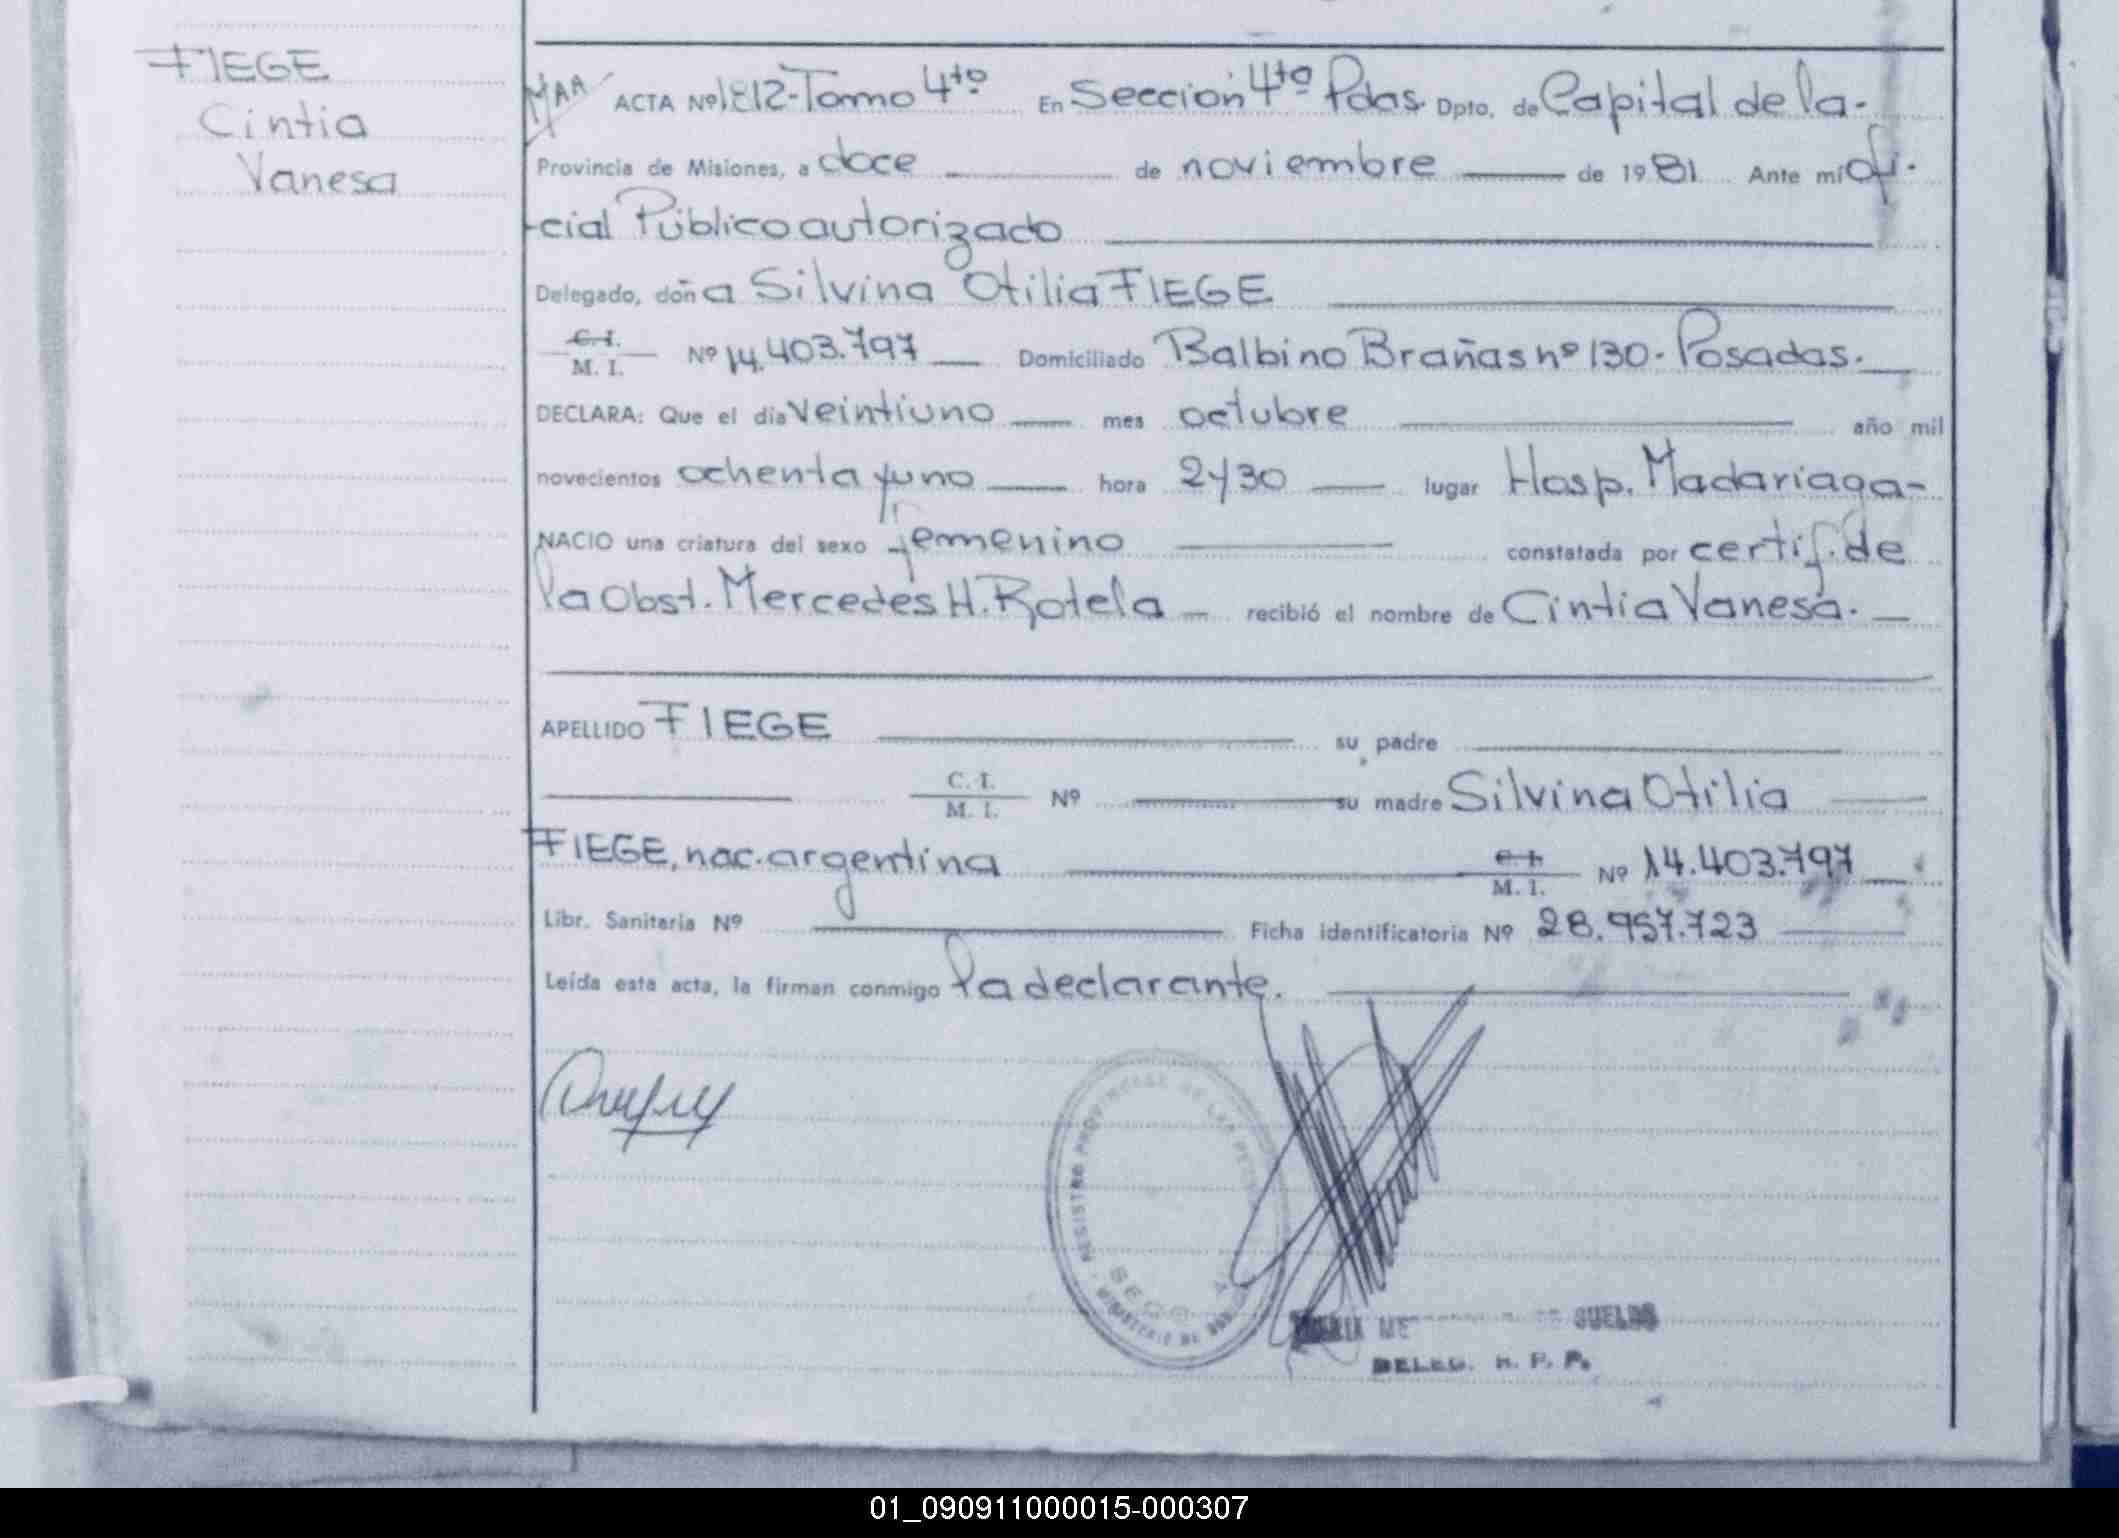 FIEGE
Cintia
Vanesa
ACTA Nº 1812-Tomo 4to En Sección 4ta Pdas. Dpto. de Capital de la-
Provincia de Misiones, a doce de noviembre de 1981 Ante mí Ofi-
cial Público autorizado
Delegado, doña Silvina Otilia FIEGE
C.I.
M. I. Nº 14.403.797 Domiciliado Balbino Brañas nº 130. Posadas.
DECLARA: Que el día veintiuno mes octubre año mil
novecientos ochenta y uno hora 2y30 lugar Hosp. Madariaga-
NACIO una criatura del sexo femenino constatada por certif. de
la Obst. Mercedes H. Rotela recibió el nombre de Cintia Vanesa.
APELLIDO FIEGE su padre
C. I.
M. I. Nº su madre Silvina Otilia
FIEGE, nac. argentina C. I.
M. I. Nº 14.403.797
Libr. Sanitaria Nº Ficha identificatoria Nº 28.957.723
Leída esta acta, la firman conmigo la declarante.
REGISTRO PROVINCIAL DE LAS PERS
MINISTERIO DE
DE SUELDO
DELEG. R. P. P.
01_090911000015-000307